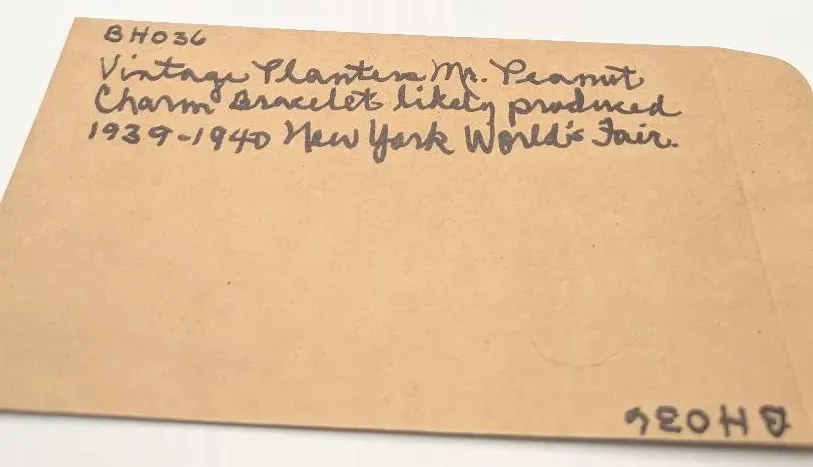 BH036
Vintage Planters Mr. Peanut
Charm Bracelet likely produced
1939-1940 New York World's Fair.
BH036